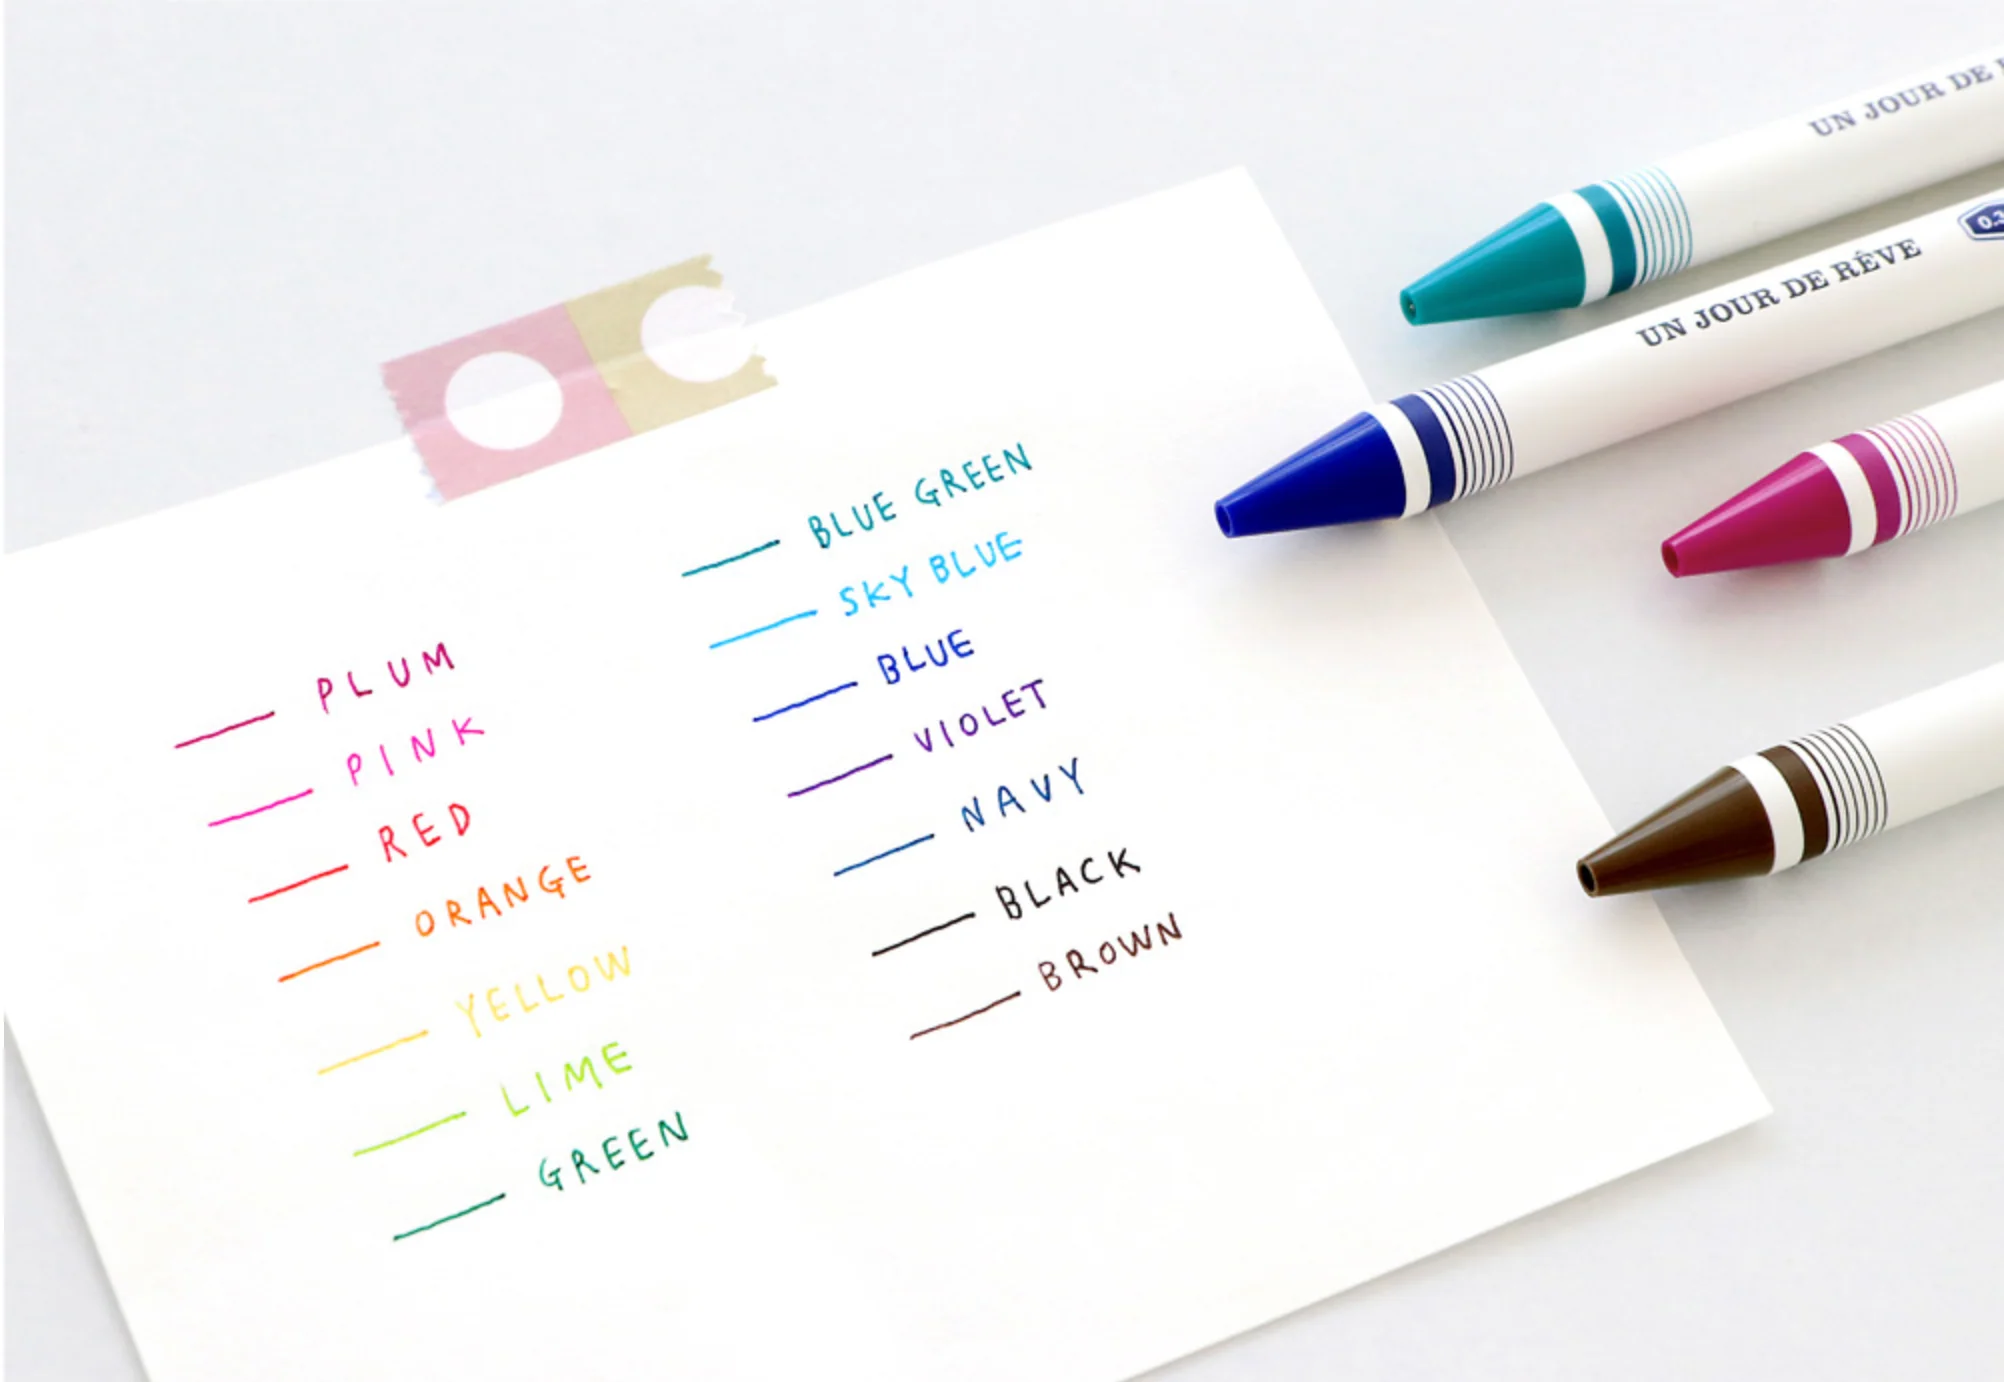 PLUM
PINK
RED
ORANGE
YELLOW
LIME
GREEN
BLUE GREEN
SKY BLUE
BLUE
VIOLET
NAVY
BLACK
BROWN
UN JOUR DE
UN JOUR DE RÊVE